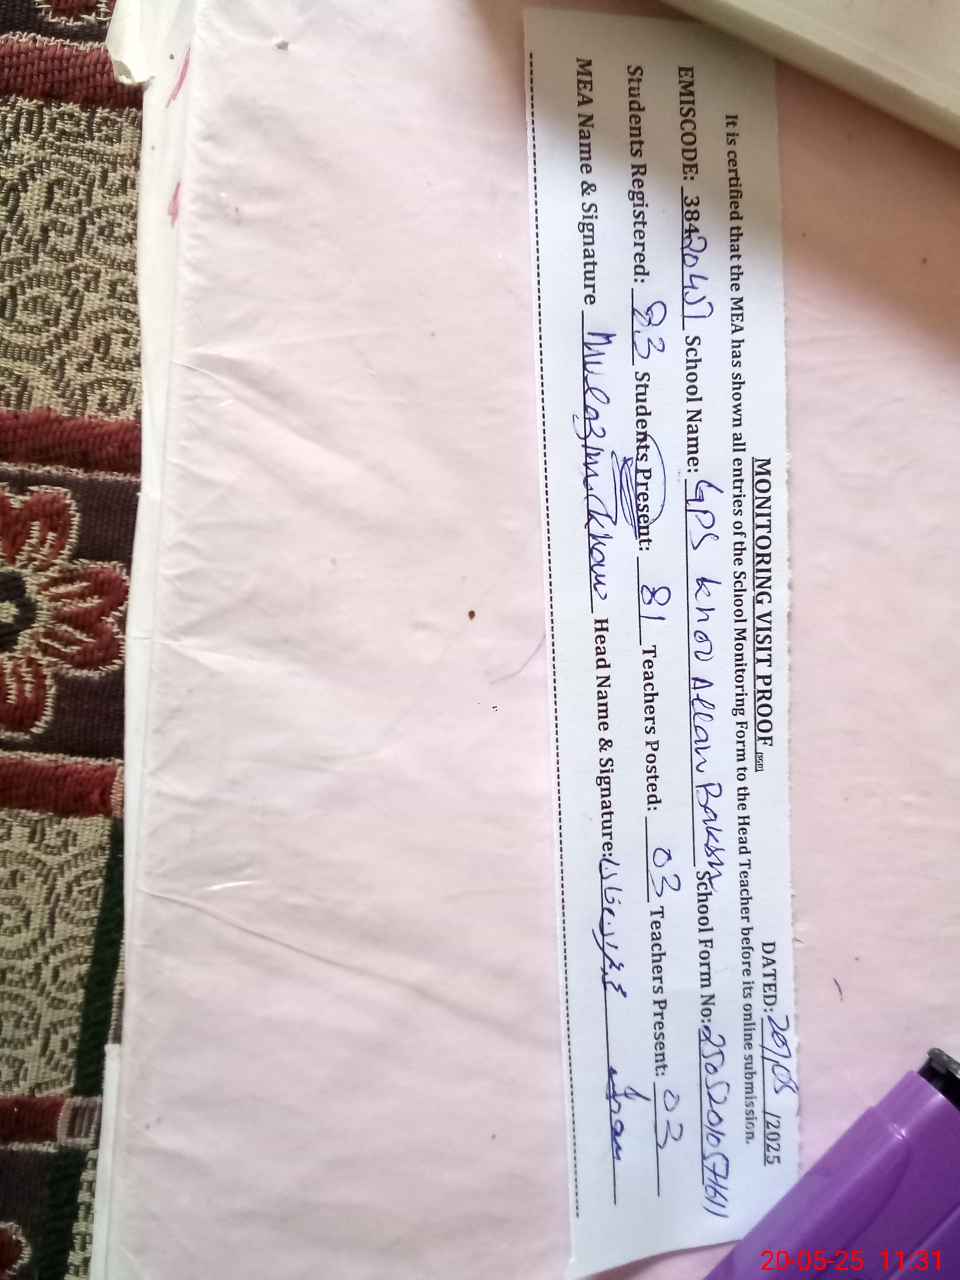 MONITORING VISIT PROOF DATED: 20/05 /2025
It is certified that the MEA has shown all entries of the School Monitoring Form to the Head Teacher before its online submission.
EMISCODE: 38420451 School Name: GPS Khoo Allah Baksh School Form No:
Students Registered: 83 Students Present: 81 Teachers Posted: 03 Teachers Present: 03
MEA Name & Signature Khan Head Name & Signature:
20-05-25 11:31